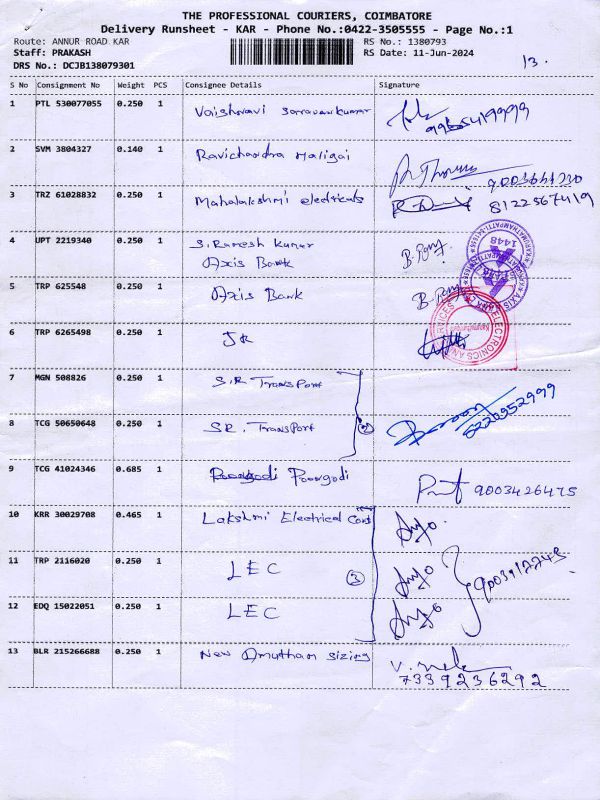 THE PROFESSIONAL COURIERS, COIMBATORE
Delivery Runsheet - KAR - Phone No.:0422-3505555 - Page No.:1
Route: ANNUR ROAD KAR
RS No.: 1380793
Staff: PRAKASH
RS Date: 11-Jun-2024
DRS No.: DCJB138079301
13.
S No Consignment No Weight PCS Consignee Details Signature
1 PTL 530077055 0.250 1 Vaishnavi Saravankumar
2 SVM 3804327 0.140 1 Ravichandra Maligai
3 TRZ 61028832 0.250 1 Mahalakshmi electricals 8122567419
4 UPT 2219340 0.250 1 S. Ramesh Kumar
Axis Bank
5 TRP 625548 0.250 1 Axis Bank
6 TRP 6265498 0.250 1 JR
7 MGN 508826 0.250 1 S.R Transport
8 TCG 50650648 0.250 1 SR. Transport
9 TCG 41024346 0.685 1 Poongodi 9003426475
10 KRR 30029708 0.465 1 Lakshmi Electrical
11 TRP 2116020 0.250 1 LEC 3
12 EDQ 15022051 0.250 1 LEC
13 BLR 215266688 0.250 1 New Amutham Sizing
7339236292